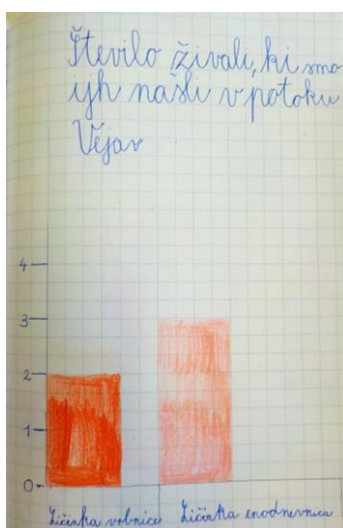 Število živali, ki smo
ijh našli v potoku
Vejar
4
3
2
1
0
Ličinka vrbnice Ličinka enodnevnica